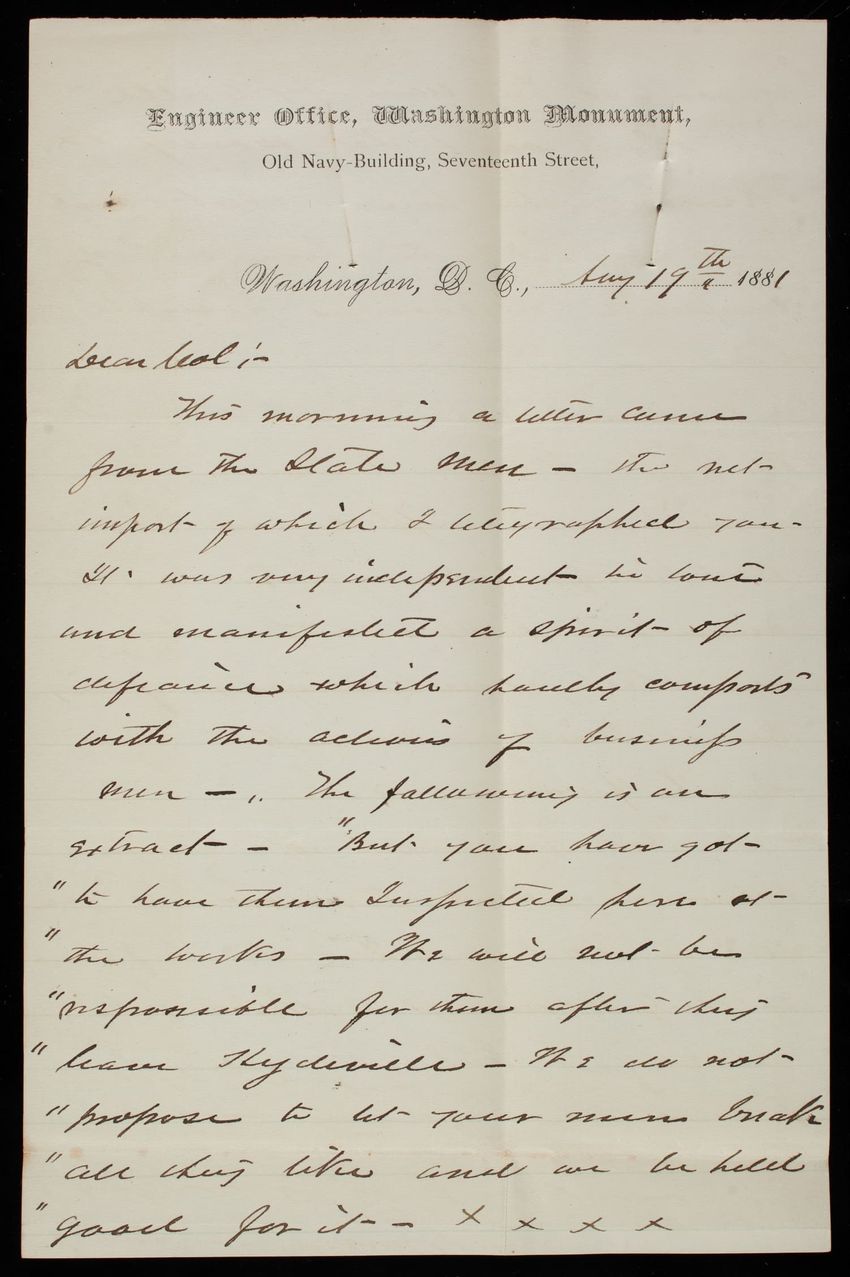 Engineer Office, Washington Monument,
Old Navy-Building, Seventeenth Street,
Washington, D. C., Aug 19th 1881
Dear Col :-
This morning a letter came
from the Slate Men - the net
import of which I telegraphed you -
It was very independent in tone
and manifested a spirit of
defiance which hardly comports
with the actions of business
men - . The following is an
extract - "But you have got
"to have them Inspected here at
"the works - We will not be
"responsible for them after they
"leave Hydeville - We do not
"propose to let your men break
"all they like and we be held
"good for it - x x x x